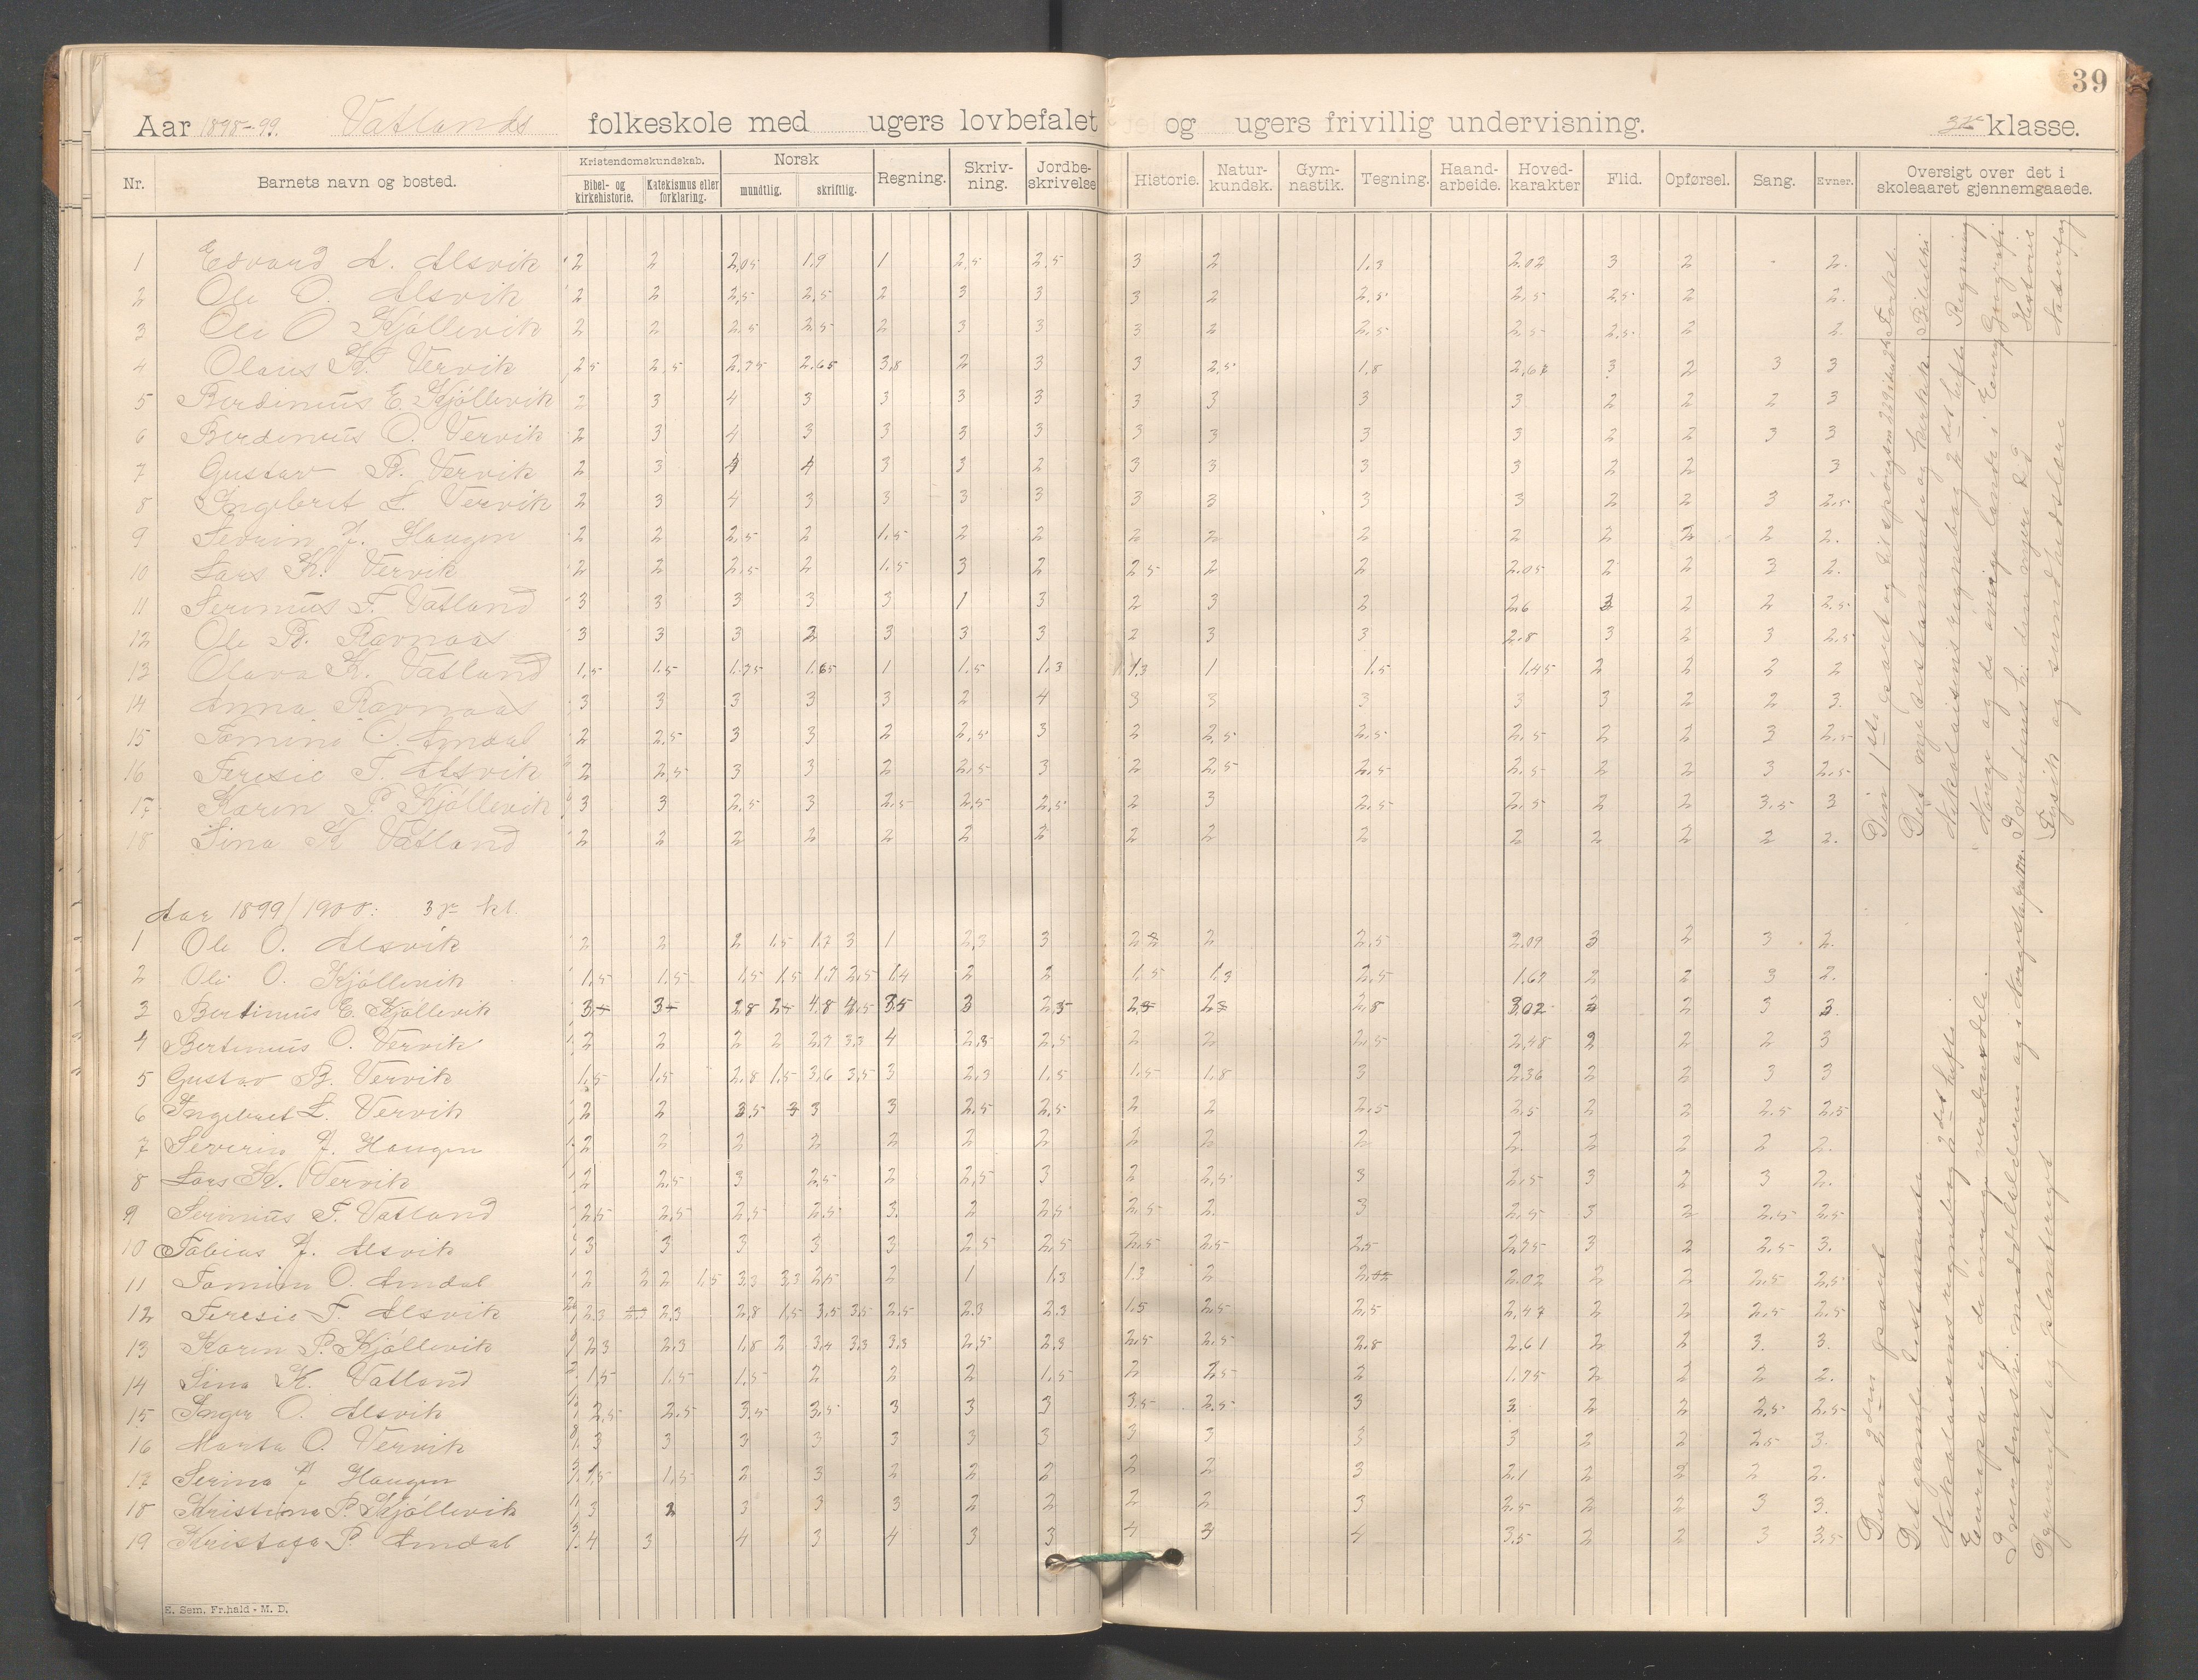 39
Aar 1898-99. Vatlands folkeskole med ugers lovbefalet og ugers frivillig undervisning. 3die klasse.
Nr. Barnets navn og bosted. Kristendomskundskab. Bibel- og kirkehistorie. Katekismus eller forklaring. Norsk mundtlig. skriftlig. Regning. Skrivning. Jordbeskrivelse Historie. Naturkundsk. Gymnastik. Tegning. Haandarbeide. Hovedkarakter Flid. Opførsel. Sang. Evner. Oversigt over det i skoleaaret gjennemgaaede.
1 Edvard A. Alsvik 2 2 2,05 1,9 1 2,5 2,5 3 2 1,3 2.02 3 2 - 2.
2 Ole O. Alsvik 2 2 2,5 2,5 2 3 3 3 2 2,5 2,5 2,5 2 2.
3 Ole O Kjöllevik 2 2 2,5 2,5 2 3 3 3 2 2,5 2,5 2,5 2 2.
4 Olaus K. Vervik 2,5 2,5 2,75 2,65 3,8 2 3 3 2,5 1,8 2,67 3 2 3 3
5 Berdinius E. Kjöllevik 2 3 4 3 3 3 3 3 3 3 3 2 2 2 3
6 Berdinius O. Vervik 2 3 4 3 3 3 3 3 3 3 3 2 2 3 3
7 Gustav B. Vervik 2 3 4 4 3 3 2 3 3 3 3 2 2 3
8 Ingebret L. Vervik 2 3 4 3 3 3 3 3 3 3 3 2 2 3 2,5
9 Severin J. Haugen 2 2 2,5 2 1,5 2 2 2 2 2 2 2 2 2 2.
10 Lars K. Vervik 2 2 2,5 2 1,5 3 2 2,5 2 2 2.05 2 2 3 2.
11 Serinius T. Vatland 3 3 3 3 3 1 3 2 3 2 2,6 3 2 2 2,5
12 Ole B. Ravnaas 3 3 3 2 3 3 3 2 3 3 2,8 3 2 3 2,5
13 Olava K. Vatland 1,5 1,5 1,75 1,65 1 1,5 1,3 1,3 1 1,5 1,45 2 2 2 2
14 Anna Ravnaas 3 3 3 3 3 2 4 3 3 3 3 3 2 2 3.
15 Tomine O. Amdal 2 2,5 3 3 2 2,5 3 2 2,5 2,5 2,5 2 2 3 2,5
16 Teresie T. Alsvik 2 2,5 3 3 2 2,5 3 2 2,5 2,5 2,5 2 2 3 2,5
17 Karen P. Kjöllevik 3 3 2,5 3 2,5 2,5 2,5 2 3 2,5 2,5 2 2 3,5 3
18 Sina K Vatland 2 2 2 2 2 2 2 2 2 2 2 2 2 2 2.
Aar 1899/1900: 3die kl.
1 Ole O. Alsvik 2 2 2 1,5 1,7 3 1 2,3 3 2 2 2 2,5 2.09 3 2 3 2.
2 Ole O. Kjöllevik 1,5 1,5 1,5 1,5 1,7 2,5 1,4 2 2 1,5 1,3 2,5 1.67 2 2 3 2.
3 Bertinius E. Kjöllevik 3 3 2,8 2 4,8 4,5 3,5 3 2,5 2,3 2 2,8 3,02 2 3 3
4 Bertinius O. Vervik 2 2 2 2 2,7 3,3 4 2,3 2,5 2 2 2,5 2,48 2 2 2 3
5 Gustav B. Vervik 1,5 1,5 2,8 1,5 3,6 3,5 3 2,3 1,5 1,5 1,8 3 2,36 2 2 3 3
6 Ingebret L. Vervik 2 2 3,5 3 3 3 2,5 2,5 2 2 2,5 2,5 2 2 2,5 2,5
7 Severin J. Haugen 2 2 2 2 2 2 2 2 2 2 2. 2 2 2 2.
8 Lars K. Vervik 2 2,5 3 2,5 2 2,5 3 2 2,5 3 2,5 3 2 3 2.
9 Serinius T. Vatland 2,5 2,5 2,5 2,5 3. 2 2,5 2,5 2 3 2,5 3 2 2,5 2,5
10 Tobias J. Alsvik 3 3 3 3 3 2,5 2,5 2,5 2,5 2,5 2,75 3 2 2,5 3.
11 Tomine O. Amdal 2 2 2 1,5 3,3 3,3 2,5 2 1 1,3 1,3 2 2.02 2 2 2,5 2,5
12 Teresie T. Alsvik 2,3 2,3 2,8 1,5 3,5 3,5 2,5 2,3 2,3 1,5 2,5 2,5 2,47 2 2 2,5 2,5
13 Karen P. Kjöllevik 2,3 2,3 1,8 2 3,4 3,3 3,3 2,5 2,3 2,5 2,5 2,8 2,61 2 2 3. 3.
14 Sina K. Vatland 1,5 1,5 1,5 2 2 2 1,5 2 2,5 2 1,75 2 2 2 2.
15 Inger O. Alsvik 2,5 2,5 3,5 3,5 3 3 3 3,5 2,5 3 3 2 2 2,5 2,5
16 Marta O. Vervik 3 3 3 3 3 3 3 3 3 3 3 2 2 2,5 3.
17 Serina J Haugen 1,5 1,5 2 3 2 2 2 2 2 3 2,1 2 2 2 2.
18 Kristina P. Kjöllevik 3 2 3 3 3 2 2 2 2 3 2,5 2 2 3 3.
19 Kristofa P. Amdal 4 3 4 3 4 3 3 4 3 4 3,5 2 2 3 3,5
Den 1ste part og til spörgsm 229 i den st. Forkl.
Det nye testamente og kirkeh. Bibelhi
Nikolaisens regnebog 2det hefte Regning
Norge og de övrige lande i Europa Geografi
Historie
Fysik og sundhedslære Naturfag
Den 2den part
Det gamle testamente
Nikolaisens regnebog 2det hefte
Europa og de övrige verdensdele.
Dyreriget og planteriget
E. Sem, Fr.hald - M. D.